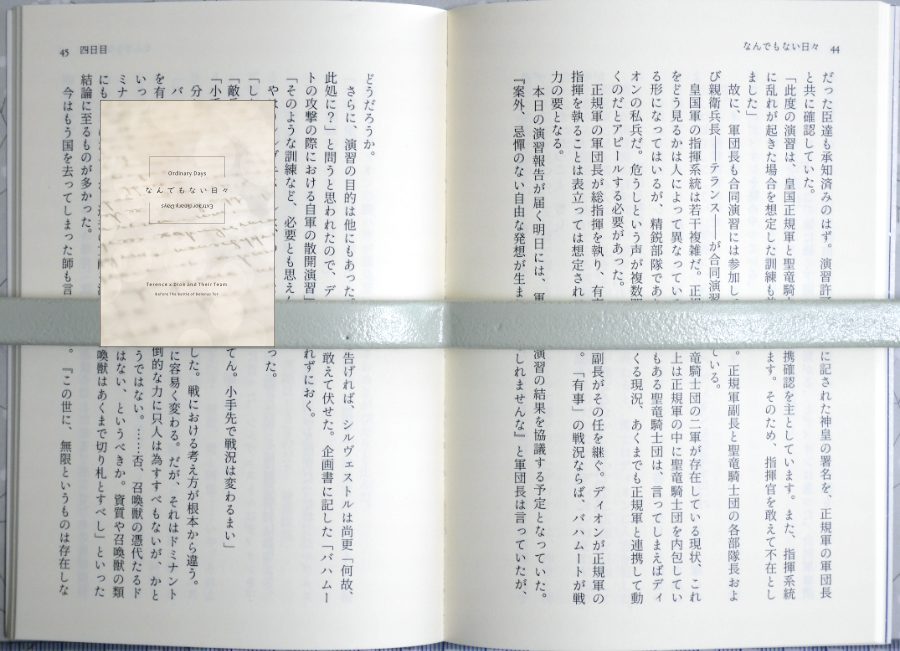 なんでもない日々 44
だった臣達も承知済みのはず。演習許 に記された神皇の署名を、正規軍の軍団長
と共に確認していた。
「此度の演習は、皇国正規軍と聖竜騎 携確認を主としています。また、指揮系統
に乱れが起きた場合を想定した訓練も ます。そのため、指揮官を敢えて不在とし
ました」
故に、軍団長も合同演習には参加し 。正規軍副長と聖竜騎士団の各部隊長およ
び親衛兵長――テランス――が合同演習 ている。
皇国軍の指揮系統は若干複雑だ。正規 竜騎士団の二軍が存在している現状、これ
をどう見るかは人によって異なってい 上は正規軍の中に聖竜騎士団を内包してい
る形になってはいるが、精鋭部隊であ もある聖竜騎士団は、言ってしまえばディ
オンの私兵だ。危うしという声が複数 くる現況、あくまでも正規軍と連携して動
くのだとアピールする必要があった。
正規軍の軍団長が総指揮を執り、有 副長がその任を継ぐ。ディオンが正規軍の
指揮を執ることは表立っては想定され 。「有事」の戦況ならば、バハムートが戦
力の要となる。
本日の演習報告が届く明日には、軍 演習の結果を協議する予定となっていた。
『案外、忌憚のない自由な発想が生ま しれませんな』と軍団長は言っていたが、
45 四日目
どうだろうか。
さらに、演習の目的は他にもあった。 告げれば、シルヴェストルは尚更「何故、
此処に？」と問うと思われたので、デ 敢えて伏せた。企画書に記した「バハムー
トの攻撃の際における自軍の散開演習」 れずにおく。
「そのような訓練など、必要とも思え
「し った。
やは
「敵 てん。小手先で戦況は変わるまい」
「小
分 した。戦における考え方が根本から違う。
バ に容易く変わる。だが、それはドミナント
を有 倒的な力に只人は為すすべもないが、かと
いっ うではない。……否、召喚獣の憑代たるド
ミナ はない、というべきか。資質や召喚獣の類
にも 喚獣はあくまで切り札とすべし」といった
結論に至るものが多かった。
今はもう国を去ってしまった師も言 。『この世に、無限というものは存在しな
Ordinary Days
なんでもない日々
Extraordinary Days
Terence x Dion and Their Team
Before The Battle of Belenus Tor